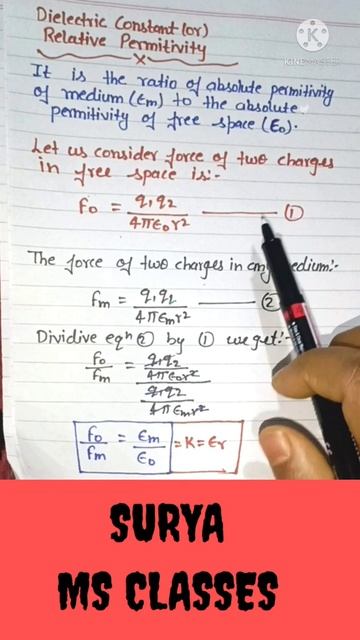 Dielectric Constant (or)
Relative Permitivity
It is the ratio of absolute permitivity
of medium (Em) to the absolute
permitivity of free space (E0).
Let us consider force of two charges
in free space is:-
F0 = q1q2 / 4πE0r² ——— ①
The force of two charges in any medium:-
Fm = q1q2 / 4πEmr² ——— ②
Dividive eqn ② by ① we get:-
F0/Fm = (q1q2 / 4πE0r²) / (q1q2 / 4πEmr²)
F0/Fm = Em/E0 = K = Er
SURYA
MS CLASSES